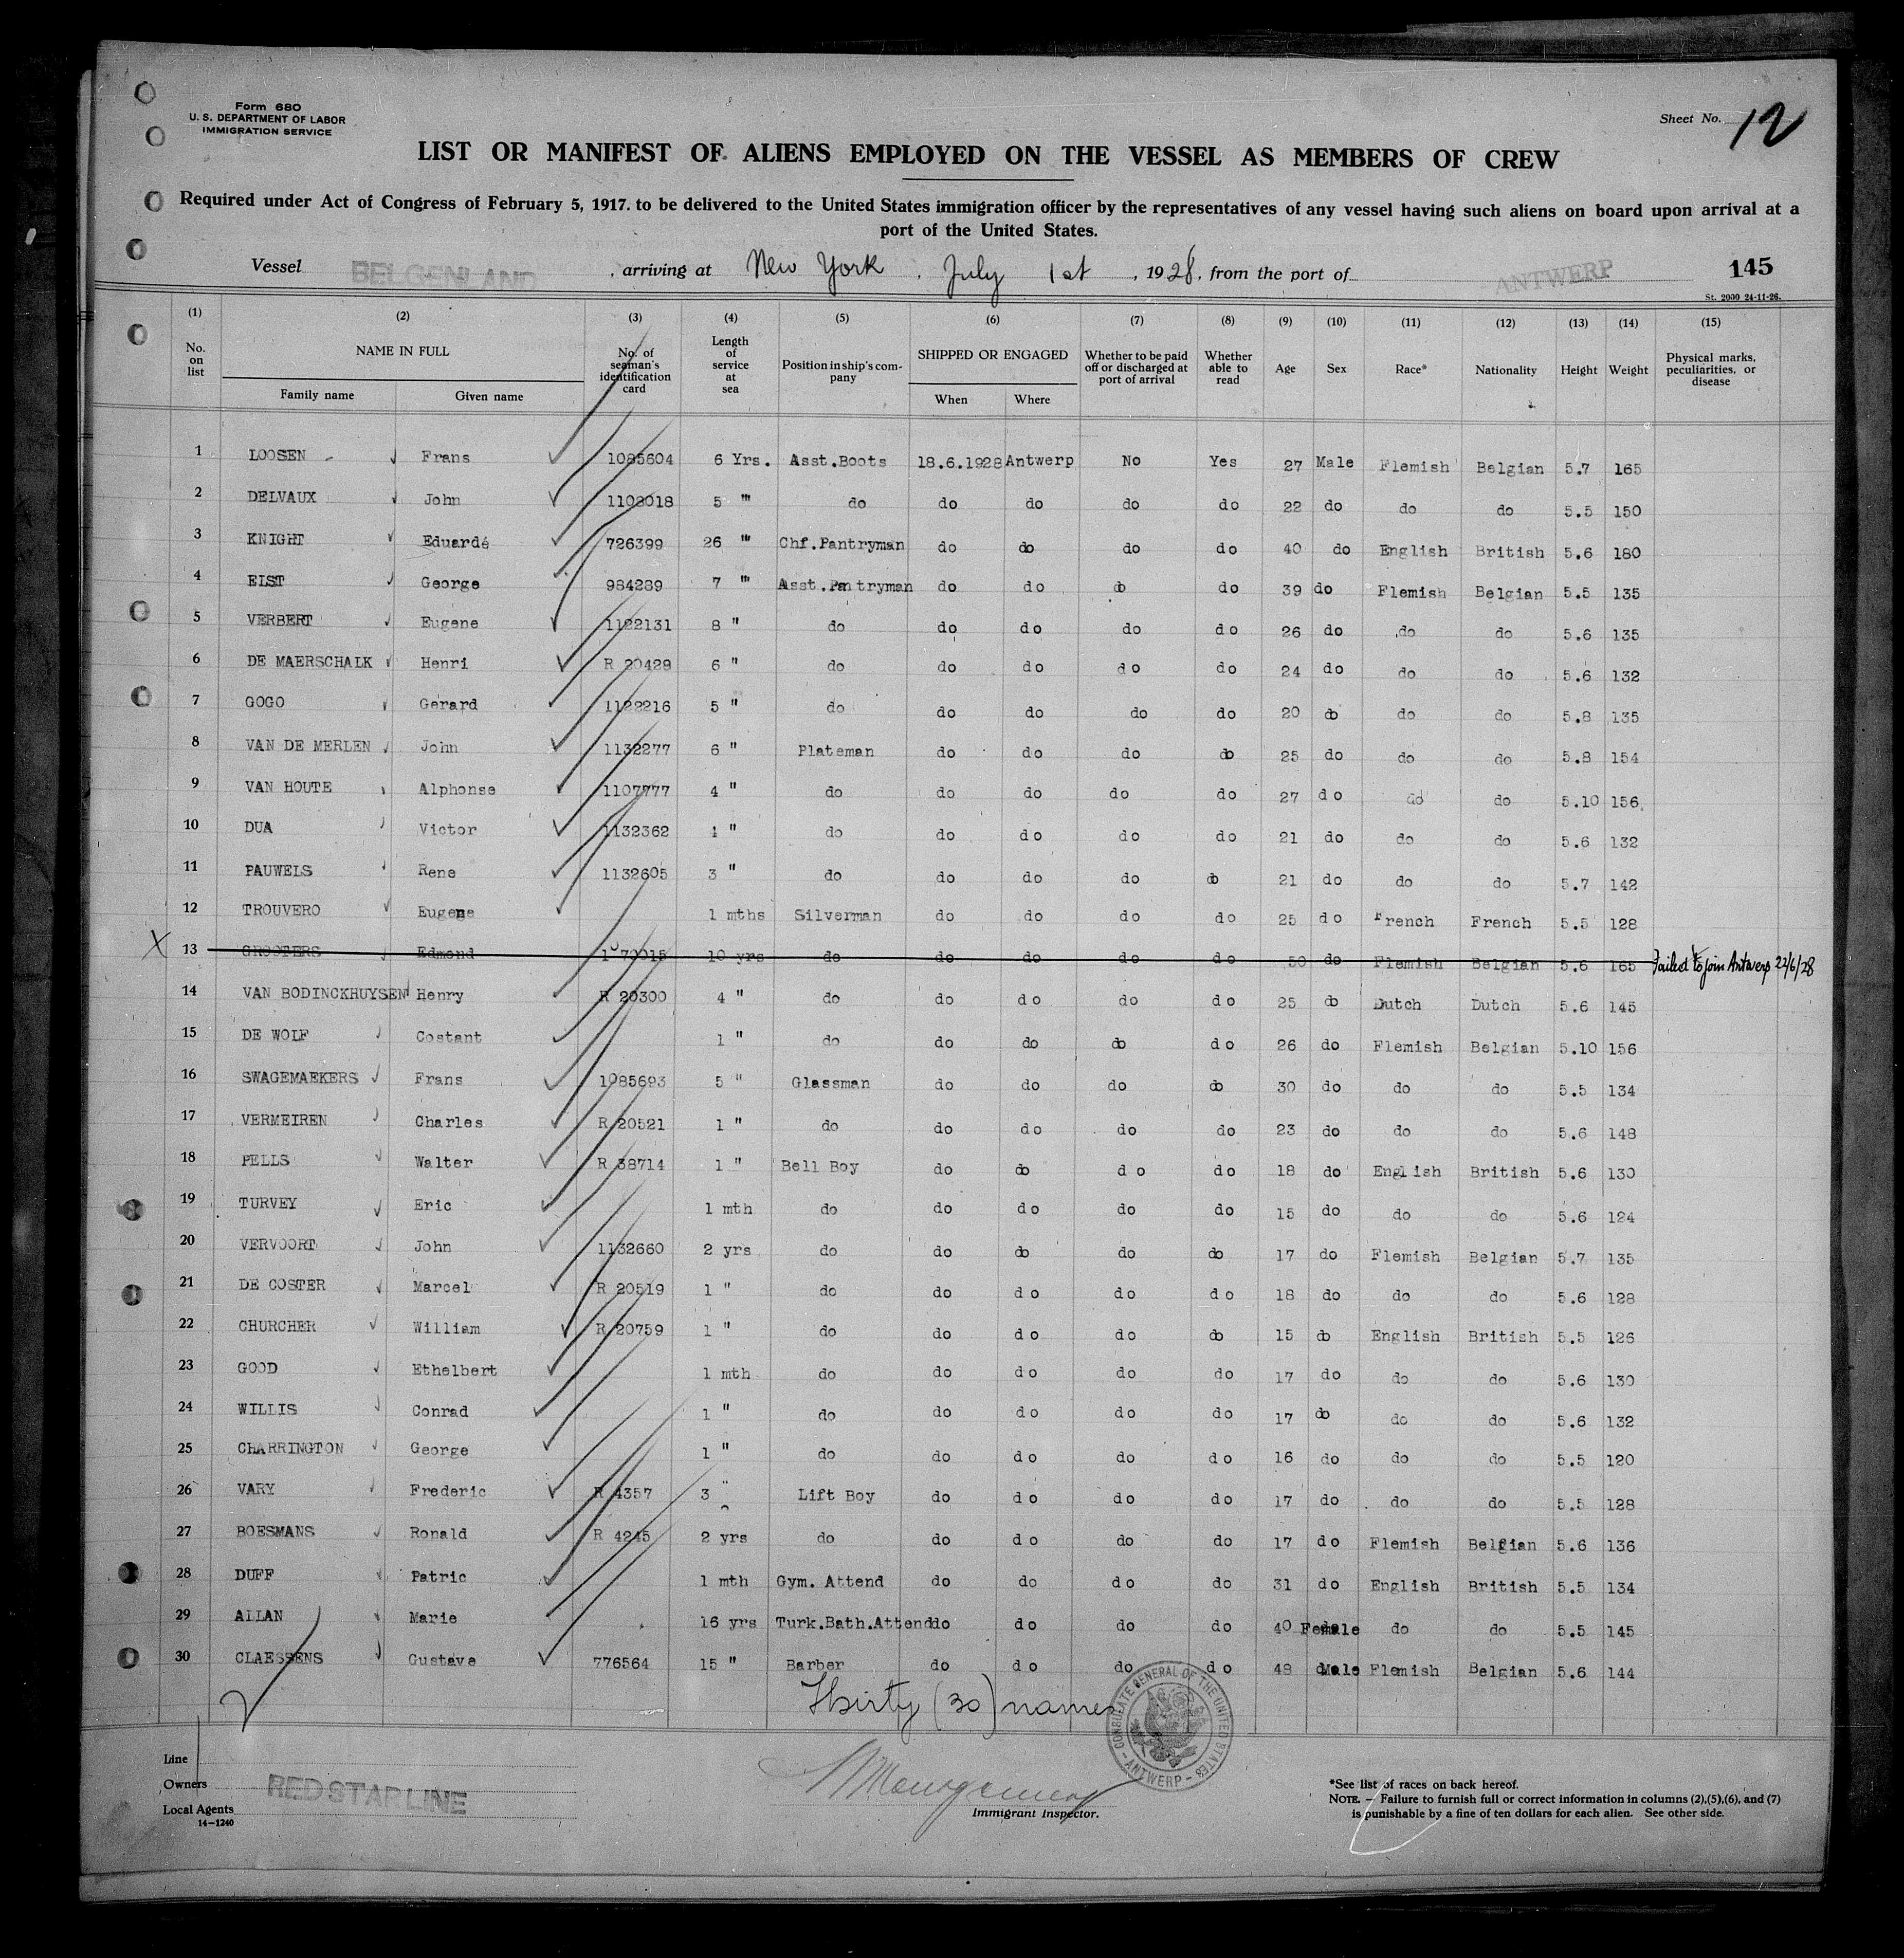 Form 680
U. S. DEPARTMENT OF LABOR
IMMIGRATION SERVICE
Sheet No. 12
LIST OR MANIFEST OF ALIENS EMPLOYED ON THE VESSEL AS MEMBERS OF CREW
Required under Act of Congress of February 5, 1917. to be delivered to the United States immigration officer by the representatives of any vessel having such aliens on board upon arrival at a
port of the United States.
Vessel BELGENLAND, arriving at New York, July 1st, 1928, from the port of ANTWERP 145
St. 2000 24-11-26.
(1) (2) (3) (4) (5) (6) (7) (8) (9) (10) (11) (12) (13) (14) (15)
No. on list NAME IN FULL Family name Given name No. of seaman's identification card Length of service at sea Position in ship's company SHIPPED OR ENGAGED When Where Whether to be paid off or discharged at port of arrival Whether able to read Age Sex Race* Nationality Height Weight Physical marks, peculiarities, or disease
1 LOOSEN Frans 1085604 6 Yrs. Asst.Boots 18.6.1928 Antwerp No Yes 27 Male Flemish Belgian 5.7 165
2 DELVAUX John 1108018 5 " do do do do do 22 do do do 5.5 150
3 KNIGHT Eduardé 726399 26 " Chf.Pantryman do do do do 40 do English British 5.6 180
4 EIST George 984289 7 " Asst.Pantryman do do do do 39 do Flemish Belgian 5.5 135
5 VERBERT Eugene 1122131 8 " do do do do do 26 do do do 5.6 135
6 DE MAERSCHALK Henri R 20429 6 " do do do do do 24 do do do 5.6 132
7 GOGO Gerard 1122216 5 " do do do do do 20 do do do 5.8 135
8 VAN DE MERLEN John 1132277 6 " Plateman do do do do 25 do do do 5.8 154
9 VAN HOUTE Alphonse 1107777 4 " do do do do do 27 do do do 5.10 156
10 DUA Victor 1132362 1 " do do do do do 21 do do do 5.6 132
11 PAUWELS Rene 1132605 3 " do do do do do 21 do do do 5.7 142
12 TROUVERO Eugene 1 mths Silverman do do do do 25 do French French 5.5 128
X 13 GROOTERS Edmond 1070015 10 yrs do do do do do 50 do Flemish Belgian 5.6 165 Failed to join Antwerp 22/6/28
14 VAN BODINCKHUYSEN Henry R 20300 4 " do do do do do 25 do Dutch Dutch 5.6 145
15 DE WOLF Costant 1 " do do do do do 26 do Flemish Belgian 5.10 156
16 SWAGEMAEKERS Frans 1085693 5 " Glassman do do do do 30 do do do 5.5 134
17 VERMEIREN Charles R 20521 1 " do do do do do 23 do do do 5.6 148
18 PELLS Walter R 38714 1 " Bell Boy do do do do 18 do English British 5.6 130
19 TURVEY Eric 1 mth do do do do do 15 do do do 5.6 124
20 VERVOORT John 1132660 2 yrs do do do do do 17 do Flemish Belgian 5.7 135
21 DE COSTER Marcel R 20519 1 " do do do do do 18 do do do 5.6 128
22 CHURCHER William R 20759 1 " do do do do do 15 do English British 5.5 126
23 GOOD Ethelbert 1 mth do do do do do 17 do do do 5.6 130
24 WILLIS Conrad 1 " do do do do do 17 do do do 5.6 132
25 CHARRINGTON George 1 " do do do do do 16 do do do 5.5 120
26 VARY Frederic R 4357 3 " Lift Boy do do do do 17 do do do 5.5 128
27 BOESMANS Ronald R 4245 2 yrs do do do do do 17 do Flemish Belgian 5.6 136
28 DUFF Patric 1 mth Gym. Attend do do do do 31 do English British 5.5 134
29 ALLAN Marie 16 yrs Turk.Bath.Attend do do do do 40 Female do do 5.5 145
30 CLAESSENS Gustave 776564 15 " Barber do do do do 48 Male Flemish Belgian 5.6 144
Thirty (30) names
CONSULATE GENERAL OF THE UNITED STATES - ANTWERP -
Line
Owners RED STAR LINE
Local Agents
14-1240
Immigrant Inspector.
*See list of races on back hereof.
NOTE. - Failure to furnish full or correct information in columns (2),(5),(6), and (7)
is punishable by a fine of ten dollars for each alien. See other side.